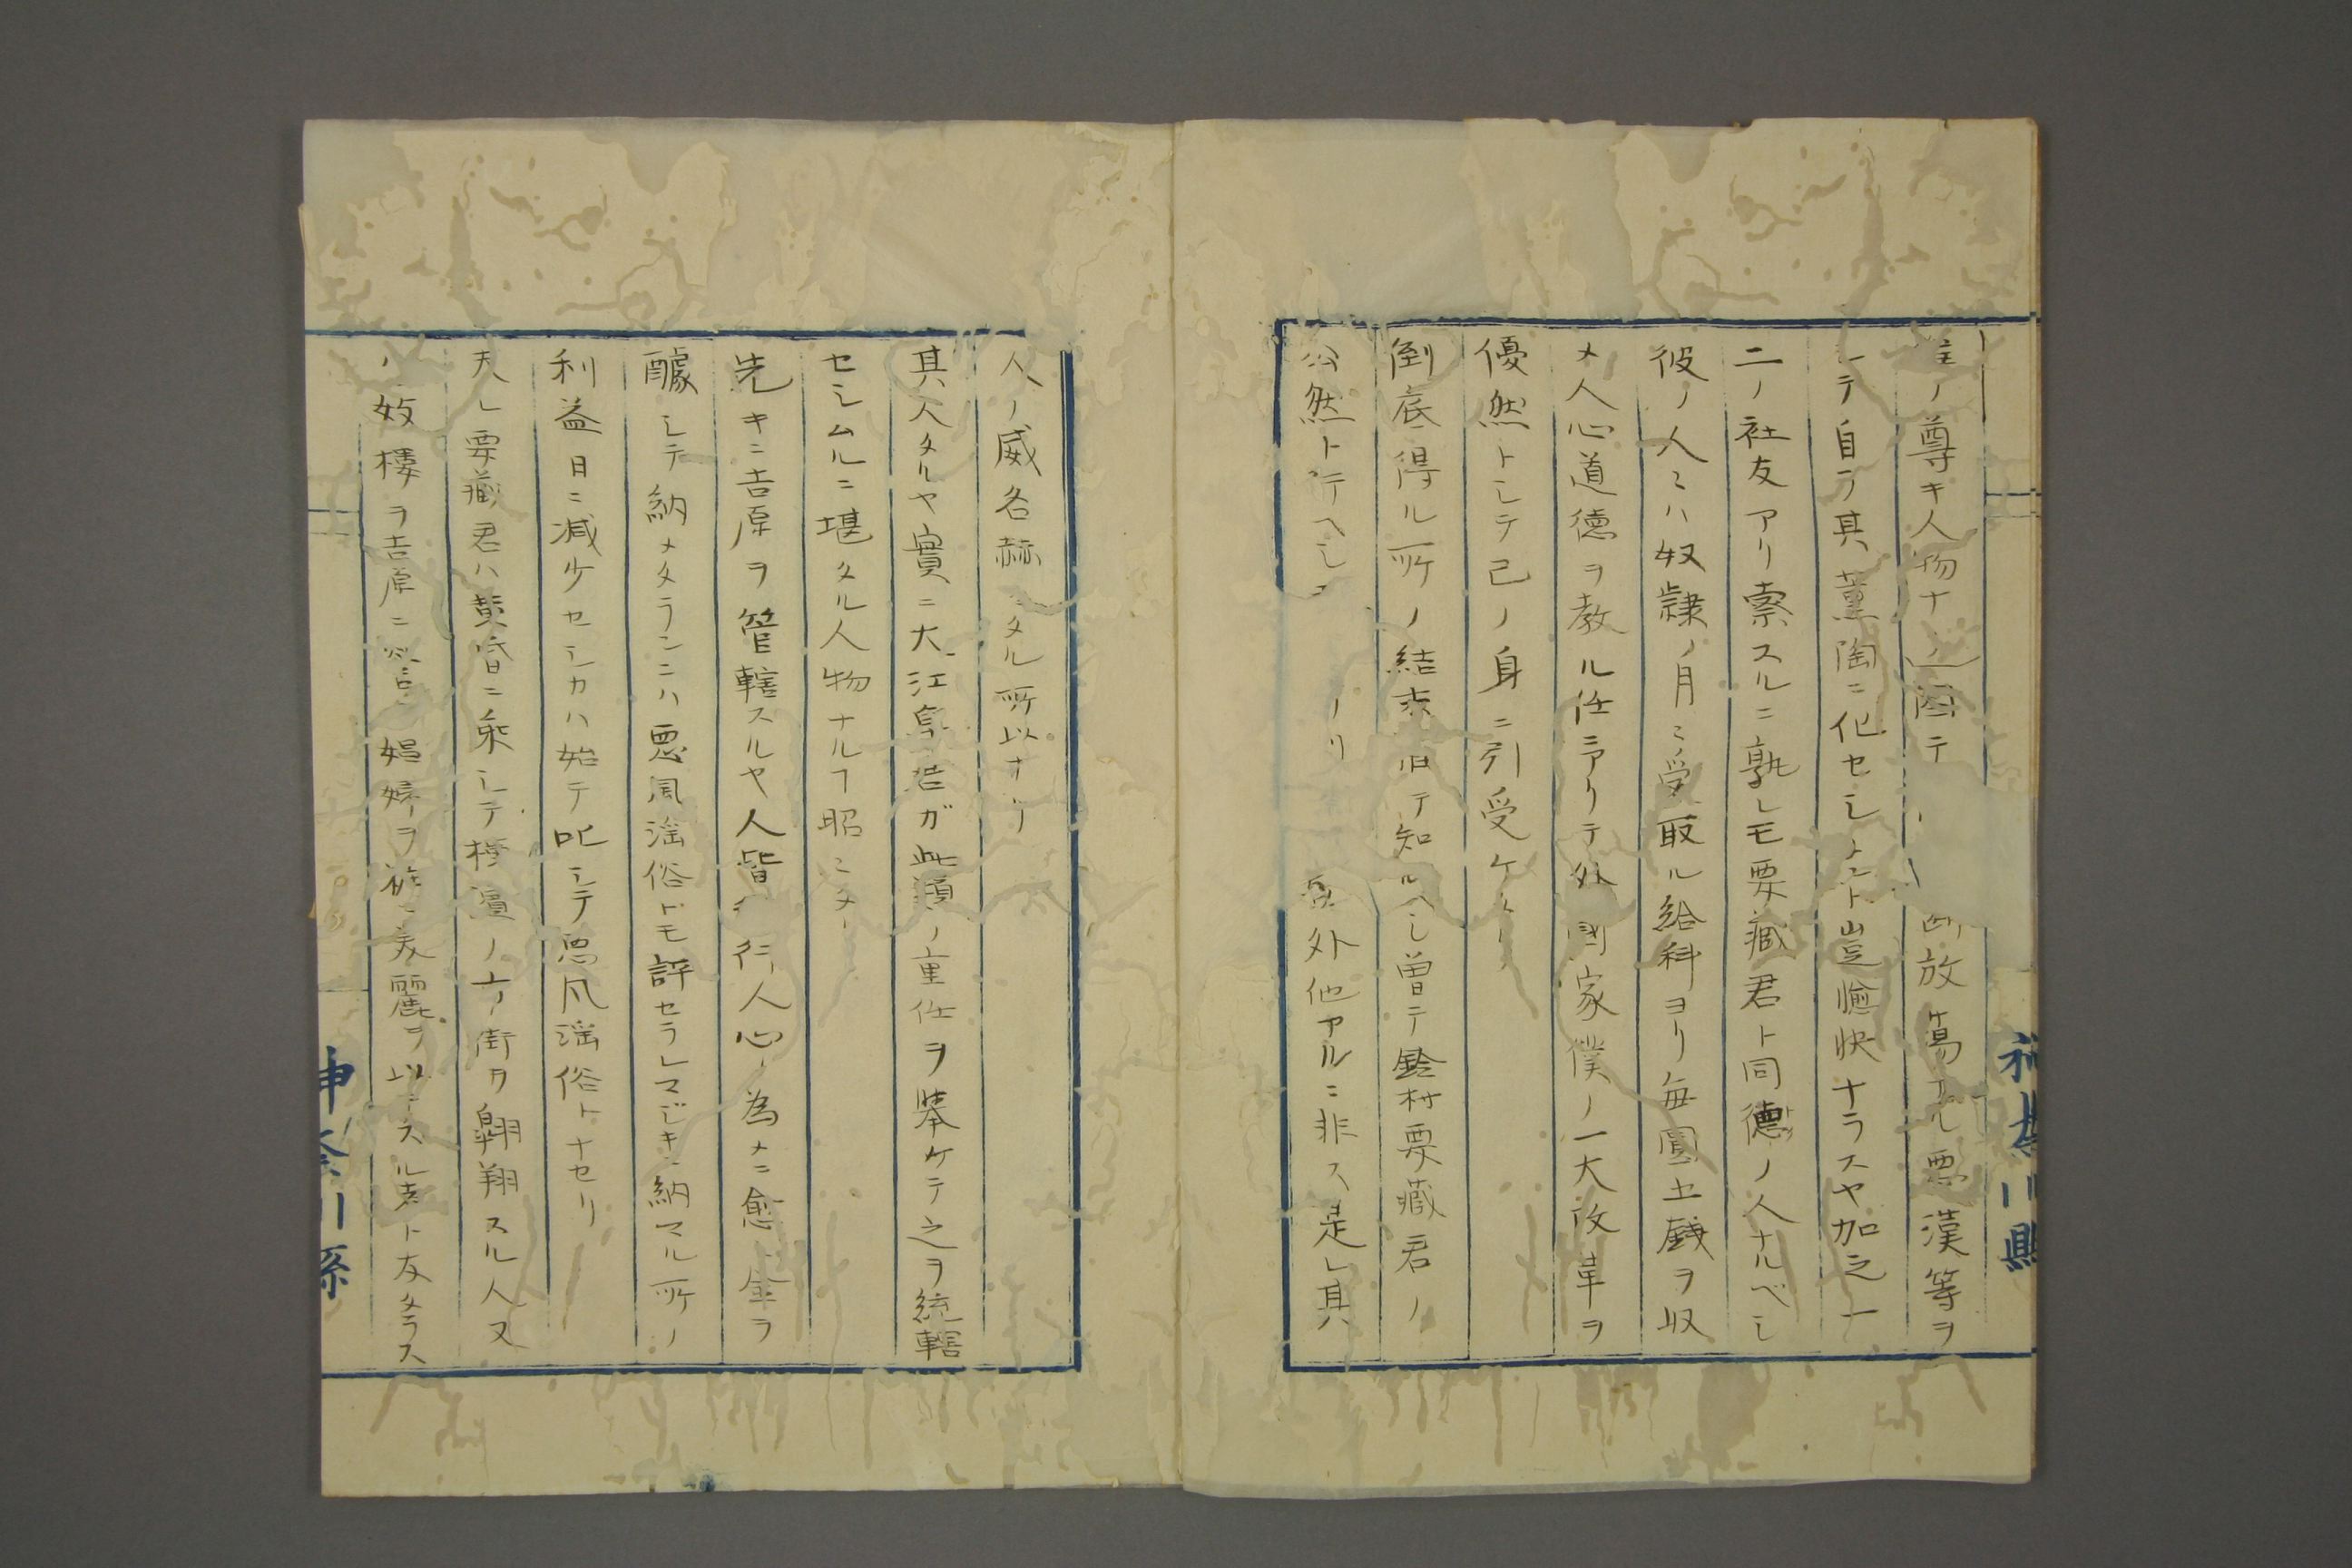 ノ尊キ人物ナ 放蕩ナル悪漢等ヲ
シテ自ラ其薫陶ニ化セシ 豈愉快ナラスヤ加之一
二ノ社友アリ索スルニ孰レモ要蔵君ト同徳ノ人ナルベシ
彼ノ人ミハ奴隷ノ月ミ受取ル給料ヨリ毎圓五銭ヲ収
メ人心道徳ヲ教ル任ニアリテ外国家僕ノ一大改革ヲ
優然トシテ己ノ身ニ引受ケ
倒底得ル所ノ結 テ知ルヘシ曽テ鈴村要蔵君ノ
公然ト行ヘシ 外他アルニ非ス是レ其
人ノ威名赫 タル所以ナリ
其人タルヤ實ニ大江 ガ此類ノ重任ヲ挙ケテ之ヲ統轄
セシムルニ堪タル人物ナルヿ昭ミ
先キニ吉原ヲ管轄スルヤ人皆 行人心ノ為メニ愈 金ヲ
醵シテ納メタランニハ悪風淫俗トモ評セラレマジキニ納マル所ノ
利益日ニ減少セシカハ始テ叱シテ悪風淫俗トナセリ
夫レ要蔵君ハ黄昏ニ乗シテ横濱ノ 街ヲ翺翔スル人又
ハ妓樓ヲ吉原ニ 娼婦ヲ 美麗ヲ以テスル者ト友タラス
神奈川縣
神奈川縣